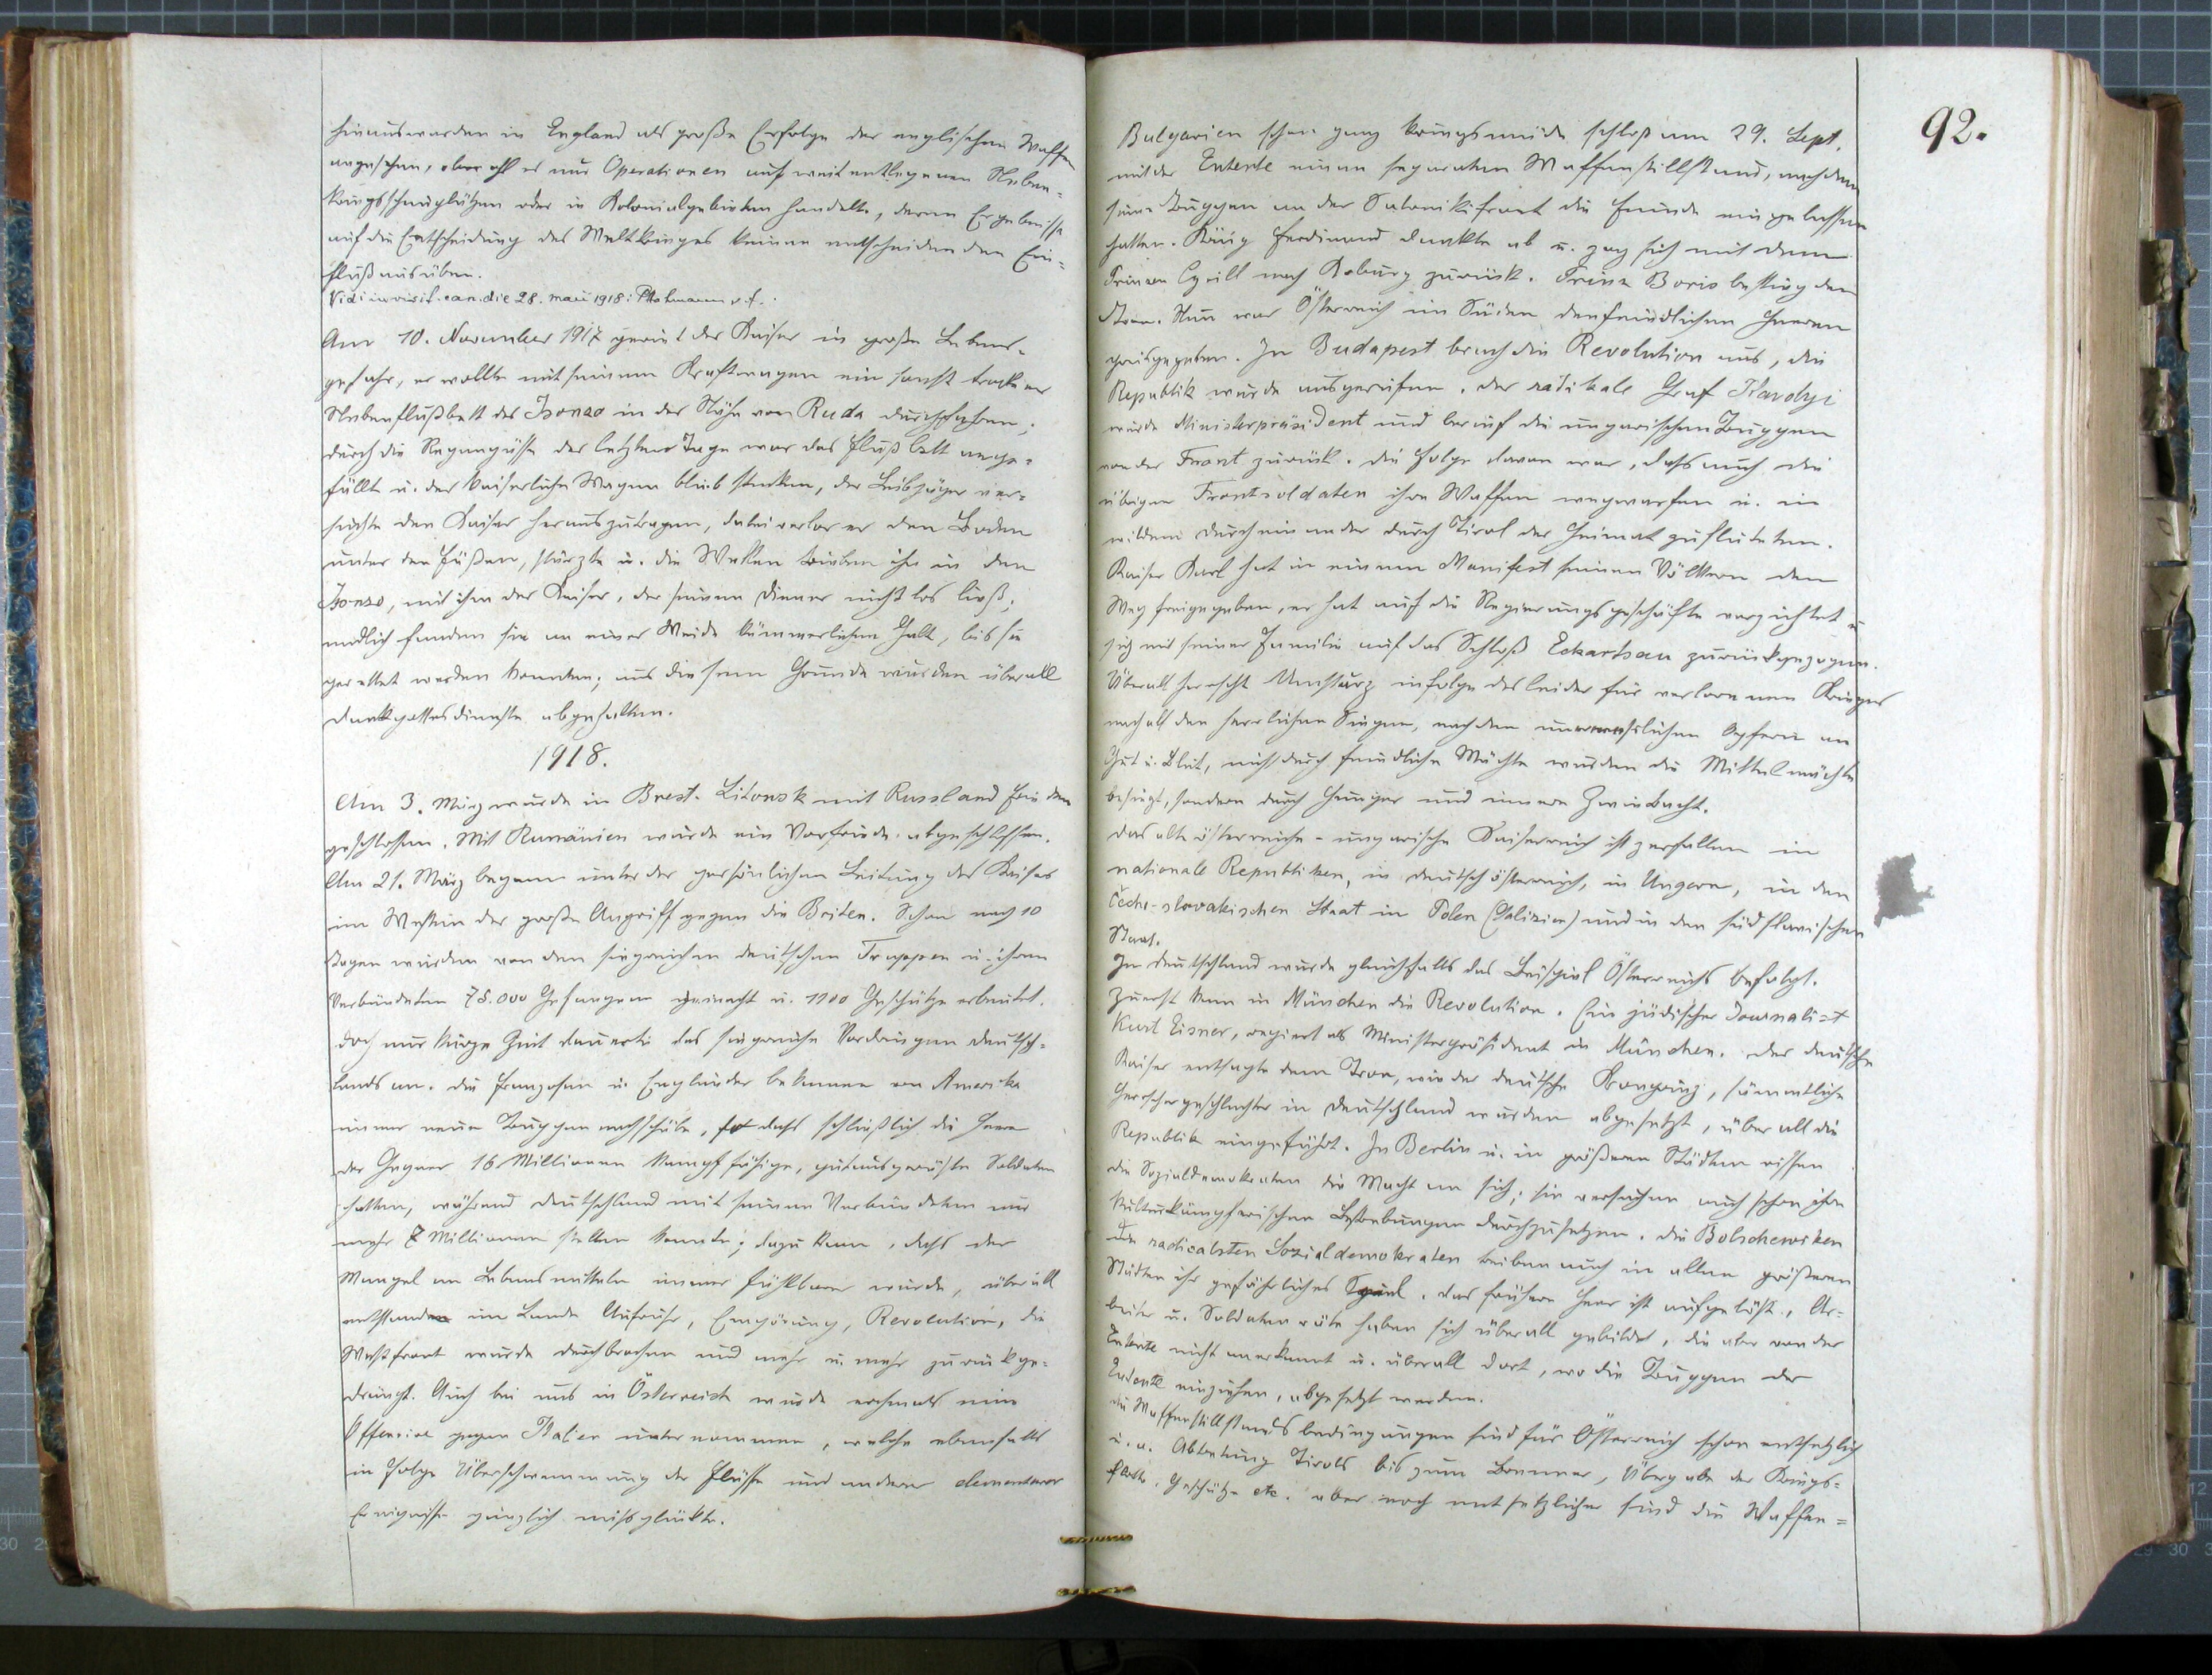 hinaus wurden in England als große Erfolge der englischen Waffen
angesehen, obwohl es nur Operationen auf weit entlegenen Neben-
kriegsschauplätzen oder in Kolonialgebieten handelte, deren Ergebnisse
auf die Entscheidung des Weltkrieges keinen entscheidenden Ein-
fluß ausüben.
Vidi in visit. can. die 28. maii 1918:
Am 10. November 1917 geriet der Kaiser in große Lebens-
gefahr, er wollte mit seinem Kraftwagen ein sonst trockenes
Nebenflußbett des Isonzo in der Nähe von Ruda durchfahren;
durch die Regengüsse der letzten Tage war das Flußbett ange-
füllt u. der kaiserliche Wagen blieb stecken, der Leibjäger ver-
suchte den Kaiser herauszutragen, dabei verlor er den Boden
unter den Füßen, stürzte u. die Wellen trieben ihn in den
Isonzo, mit ihm der Kaiser, der seinen Diener nicht los ließ;
endlich fanden sie an einer Weide kümmerlichen Halt, bis sie
gerettet werden konnten; aus diesem Grunde wurden überall
Dankgottesdienste abgehalten.
1918.
Am 3. März wurde in Brest-Litowsk mit Russland Frieden
geschlossen. Mit Rumänien wurde ein Vorfriede abgeschlossen.
Am 21. März begann unter der persönlichen Leitung des Kaisers
im Westen der große Angriff gegen die Briten. Schon nach 10
Tagen wurden von den siegreichen deutschen Truppen u. ihren
Verbündeten 75.000 Gefangene gemacht u. 1100 Geschütze erbeutet.
Doch nur kurze Zeit dauerte das siegreiche Vordringen Deutsch-
lands an. Die Franzosen u. Engländer bekamen von Amerika
immer neue Truppennachschübe, so dass schließlich die Heere
der Gegner 16 Millionen kampffähige, gutausgerüste Soldaten
hatten, während Deutschland mit seinen Verbündeten nur
mehr 7 Millionen stellen konnte; dazu kam, dass der
Mangel an Lebensmitteln immer fühlbarer wurde, überall
entstanden im Lande Aufruhr, Empörung, Revolution, die
Westfront wurde durchbrochen und mehr u. mehr zurückge-
drängt. Auch bei uns in Österreich wurde nochmals eine
Offensive gegen Italien unternommen, welche ebenfalls
in Folge Überschwemmung der Flüsse und anderer elementarer
Ereignisse gänzlich missglückte.
92.
Bulgarien schon ganz kriegsmüde schloß am 29. Sept.
mit der Entente einen separaten Waffenstillstand, nachdem
seine Truppen an der Salonikifront die Feinde eingelassen
hatten. König Ferdinand dankte ab u. zog sich mit dem
Prinzen Cyrill nach Koburg zurück. Prinz Boris bestieg den
Tron. Nun war Österreich im Süden den feindlichen Heeren
preisgegeben. In Budapest brach die Revolution aus, die
Republik wurde ausgerufen. Der radikale Graf Karolyi
wurde Ministerpräsident und berief die ungarischen Truppen
von der Front zurück. Die Folge davon war, dass auch die
übrigen Frontsoldaten ihre Waffen wegwarfen u. in
wildem Durcheinander durch Tirol der Heimat zufluteten.
Kaiser Karl hat in einem Manifest seinen Völkern den
Weg freigegeben, er hat auf die Regierungsgeschäfte verzichtet u.
sich mit seiner Familie auf das Schloß Eckartsau zurückgezogen.
Überall herrscht Umsturz infolge des leider für verlorenen Krieges
nach all den herrlichen Siegen, nach den unermeßlichen Opfern an
Gut u. Blut, nicht durch feindliche Mächte wurden die Mittelmächte
besiegt, sondern durch Hunger und innere Zwietracht.
Das alte österreich-ungarische Kaiserreich ist zerfallen in
nationale Republiken, in Deutschösterreich, in Ungarn, in den
čecho-slovakischen Staat in Polen (Galizien) und in den südslavischen
Staat.
In Deutschland wurde gleichfalls das Beispiel Österreichs befolgt.
Zuerst kam in München die Revolution. Ein jüdischer Journalist
Kurt Eisner, regiert als Ministerpräsident in München. Der deutsche
Kaiser entsagte dem Tron, wie der deutsche Kronprinz, sämmtliche
Herrschergeschlechter in Deutschland wurden abgesetzt, überall die
Republik eingeführt. In Berlin u. in größeren Städten rissen
die Sozialdemokraten die Macht an sich; sie versuchen auch schon ihre
kulturkämpferischen Bestrebungen durchzusetzen. Die Bolschewiken
die radicalsten Sozialdemokraten treiben auch in allen größeren
Städten ihr gefährliches Spiel. Das frühere Heer ist aufgelöst, Ar-
beiter u. Soldatenräte haben sich überall gebildet, die aber von der
Entente nicht anerkannt u. überall dort, wo die Truppen der
Entente einziehen, abgesetzt werden.
Die Waffenstillstandsbedingungen sind für Österreich schon entsetzlich
u. a. Abtretung Tirols bis zum Brenner, Übergabe der Kriegs-
flotte, Geschütze etc. aber noch entsetzlicher sind die Waffen-